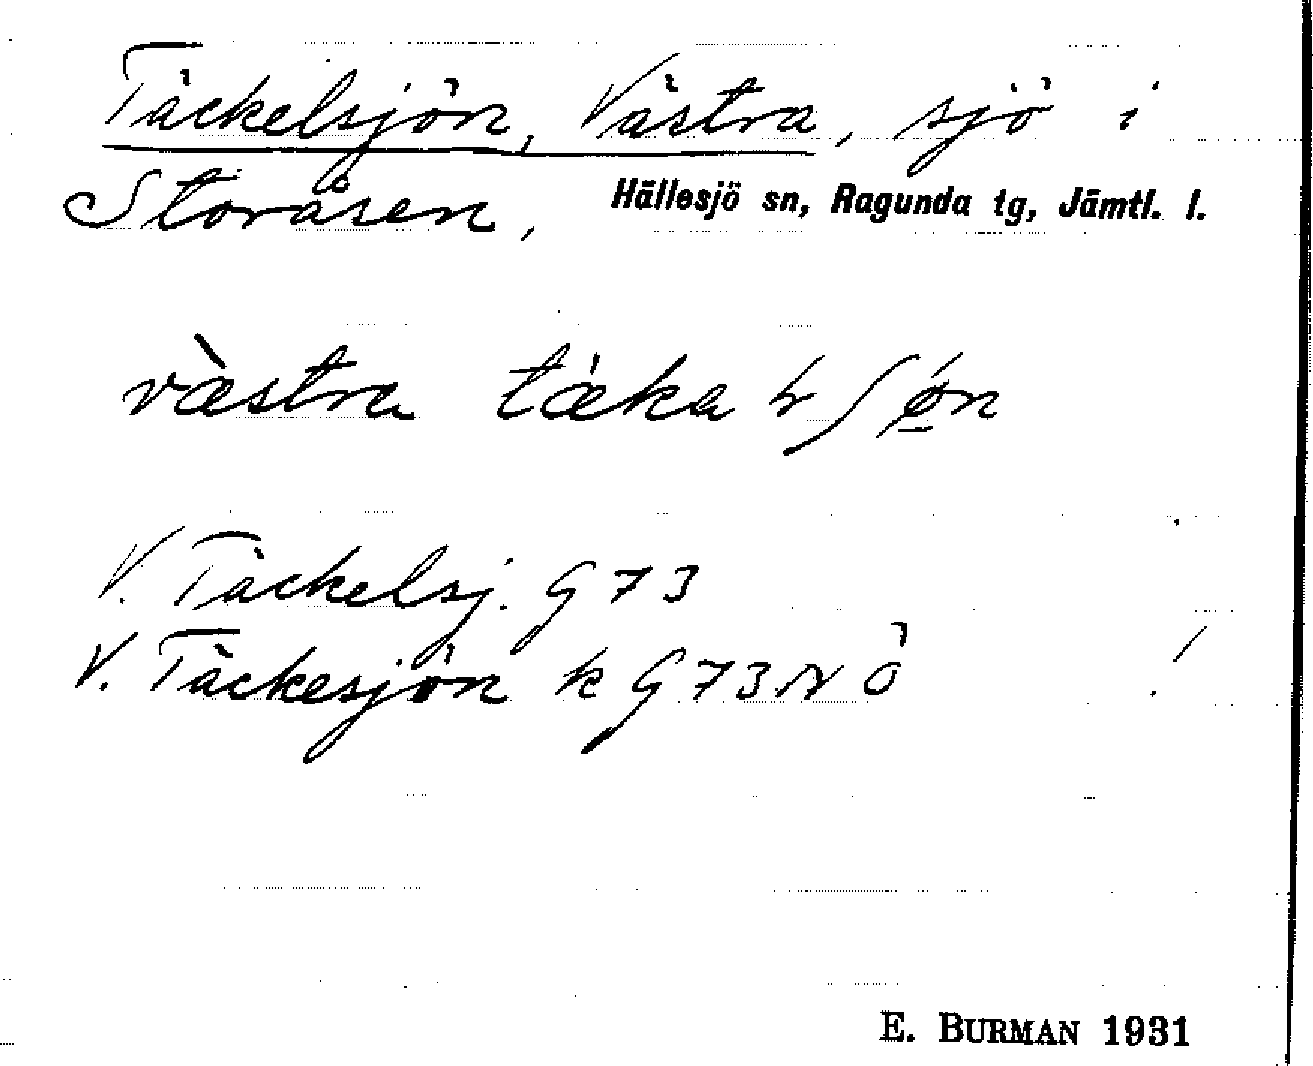 Täckelsjön, Västra, sjö i
Storåsen, Hällesjö sn, Ragunda tg, Jämtl. l.
västra tæka
V. Täckelsj. G 73
V. Täckesjön k G 73 NÖ
E. BURMAN 1931